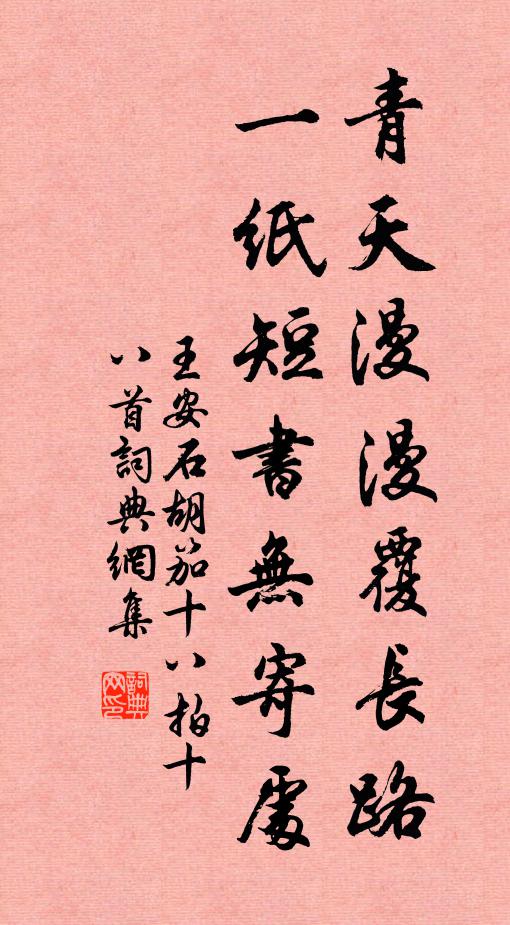 青天漫漫覆長路
一紙短書無寄處
王安石胡笳十八拍十
八首詞典網集
詞典網印